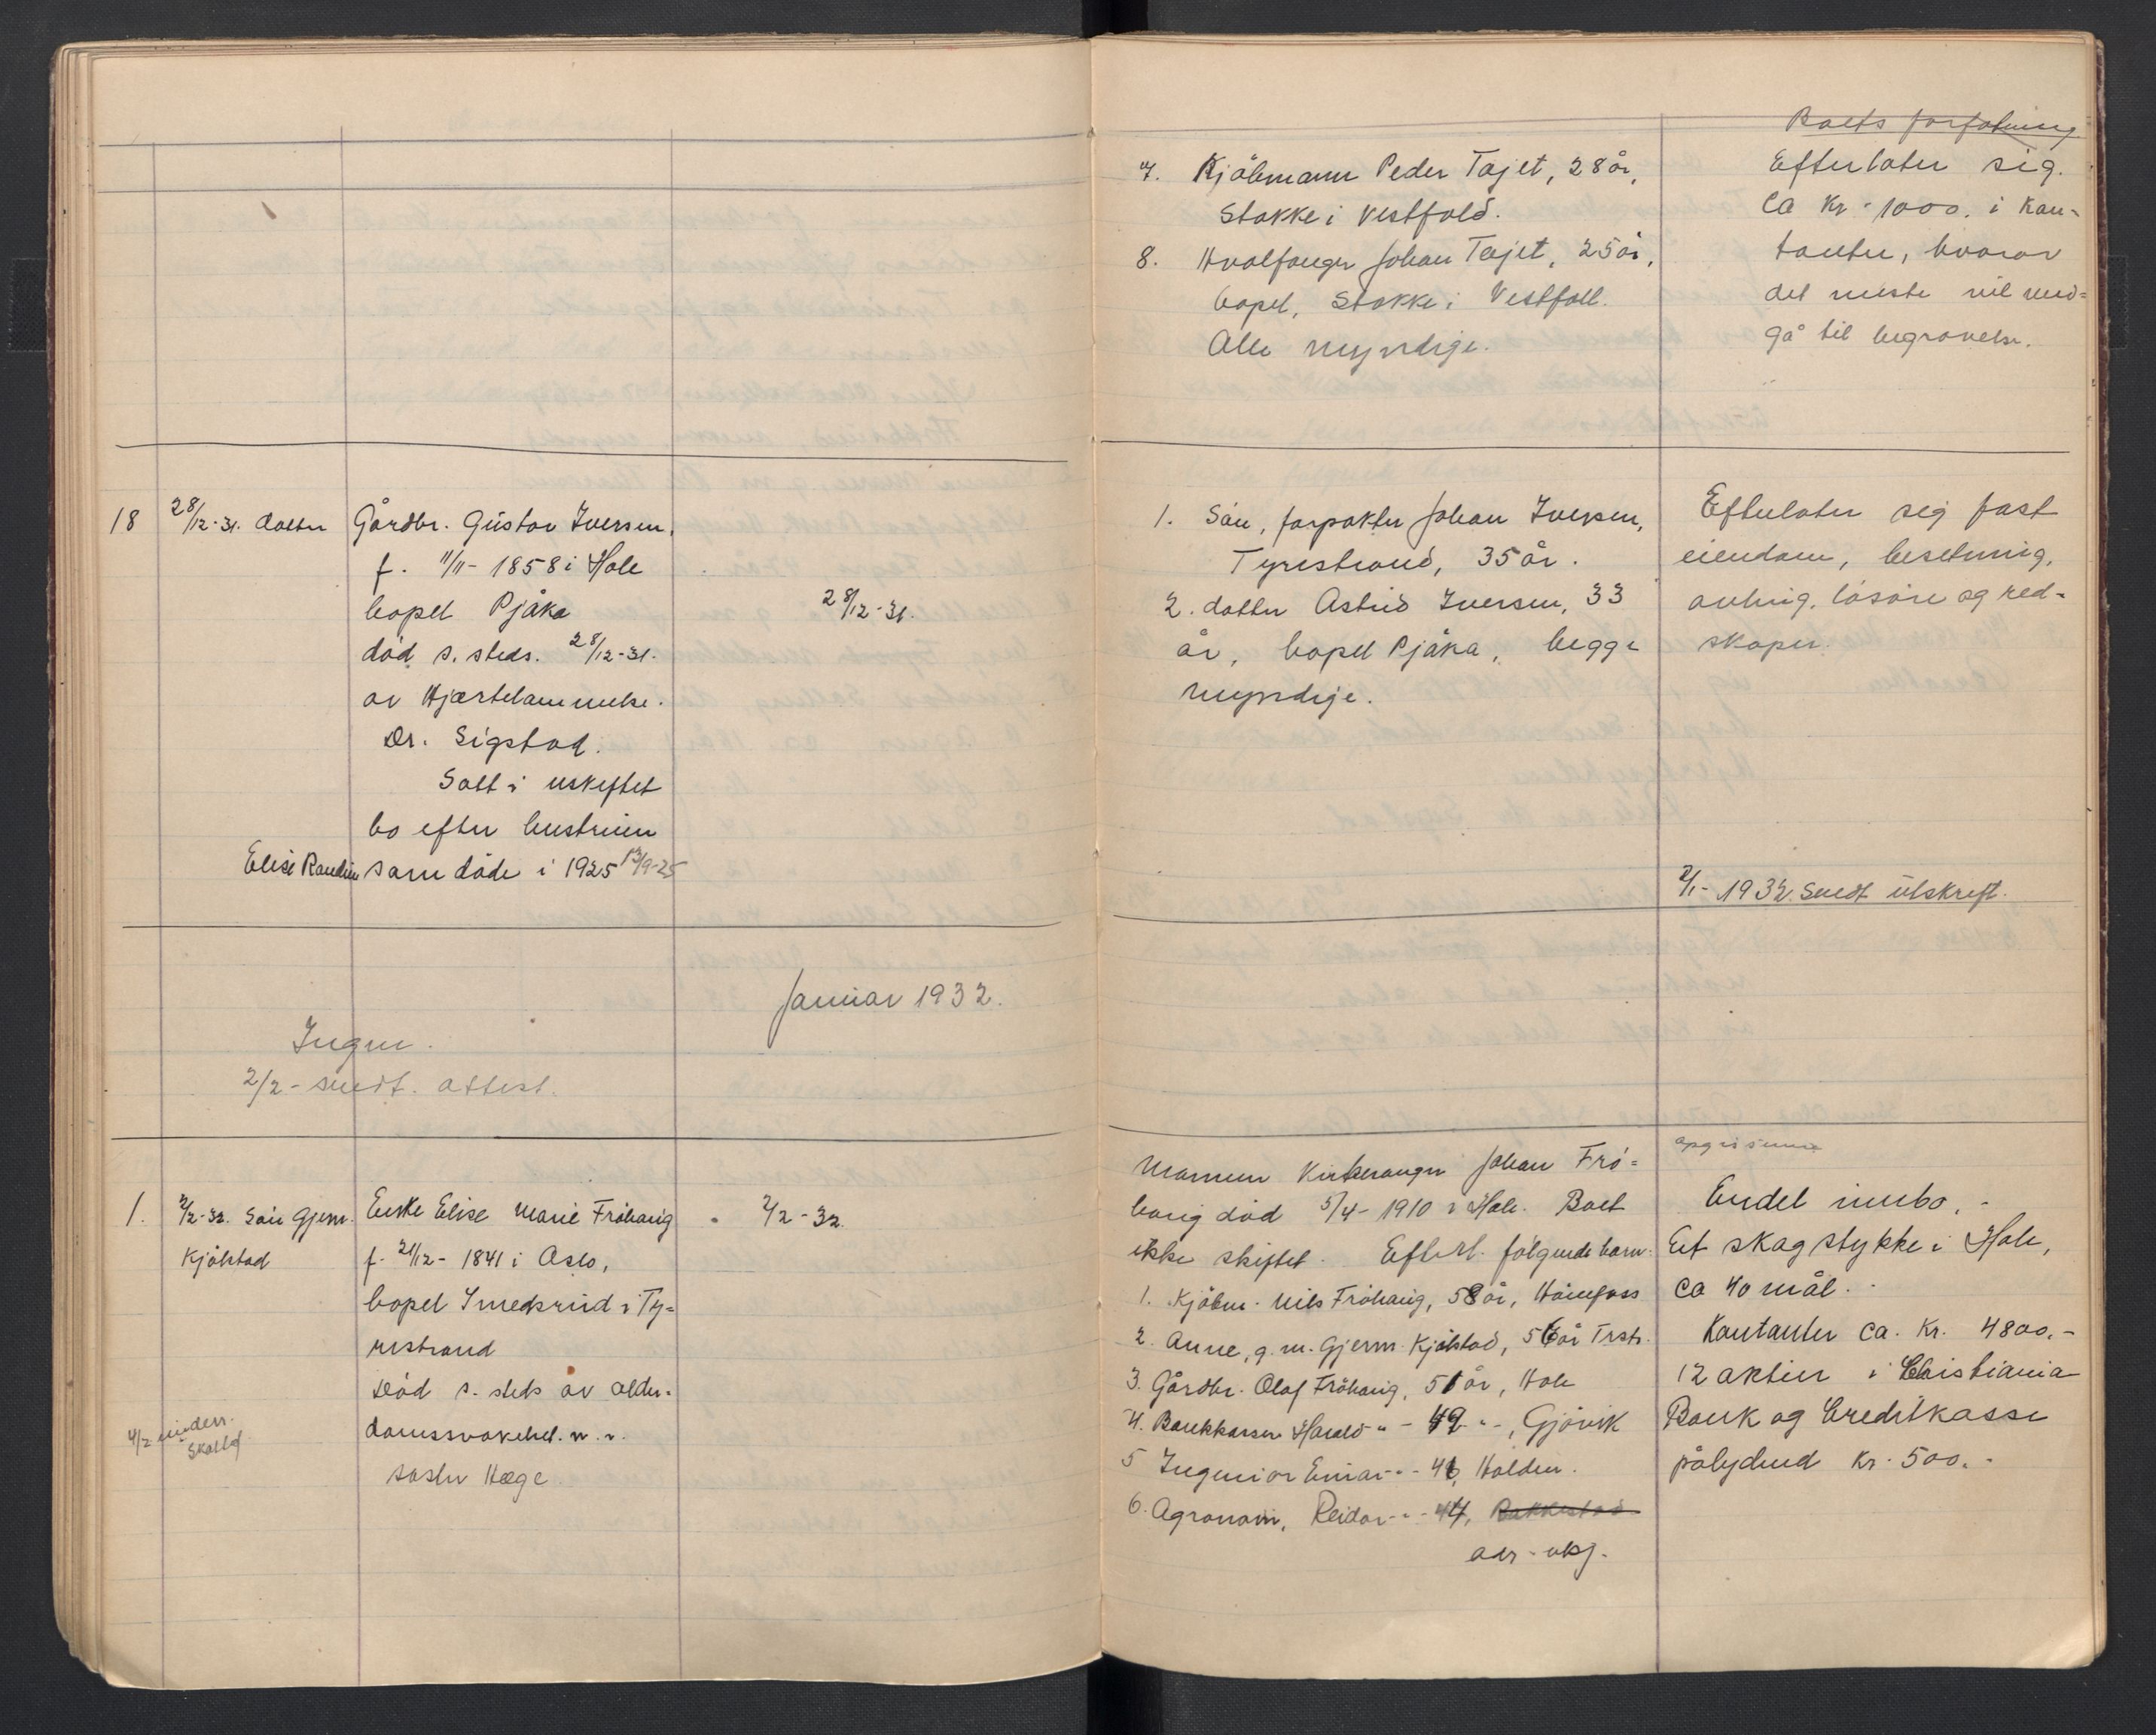 7. Kjöbmann Peder Tajet, 28 år,
Stokke i Vestfold.
8. Hvalfanger Johan Tajet, 25 år,
bopel, Stokke i Vestfoll.
Alle myndige.
Boets forfatning
Efterlater sig.
Ca Kr. 1000. i kon-
tanter, hvorav
det meste vil med-
gå til begravelse.
18 28/12-31. datter Gårdbr. Gustav Iversen,
f. 11/11-1858 i Hole
bopel Pjåka 28/12-31.
död s. steds. 28/12-31.
av Hjertelammelse.
Dr. Sigstad.
Satt i uskiftet
bo efter hustruen
Elise Randine som döde i 1925 13/9-25
1. Sön, forpakter Johan Iversen,
Tyristrand, 35 år.
2. datter Astrid Iversen, 33
år, bopel Pjåka, begge
myndige.
Efterlater sig fast
eiendom, besetning,
avling, lösöre og red-
skaper.
2/1-1932. sendt utskrift.
Januar 1932.
Ingen.
2/2-sendt. attest.
1. 2/2-32. Sön Gjerm. Enke Elise Marie Fröhaug 2/2-32.
Kjölstad f. 21/12-1841 i Oslo,
bopel Smedsrud i Ty-
ristrand
Död s. steds av alder-
4/2 underr. domssvakhet. n. v.
Skattef. söster Hæge
Mannen Kirkesanger Johan Frö-
haug död 5/4-1910 i Hole. Boet
ikke skiftet. Efterl. fölgende barn:
1. Kjöbm. Nils Fröhaug, 58 år, Hönefoss
2. Anne, g. m. Gjerm. Kjölstad, 56 år Trstr.
3. Gårdbr. Olaf Fröhaug, 51 år, Hole
4. Bankkasser Harald " - 49 " -, Gjövik
5 Ingeniör Einar - " - 46, Halden.
6. Agronom, Reidar - " - 44, Bakkestad
adr. ubkj.
opgis senere
Endel innbo,.-
Et skogstykke i Hole,
Ca 40 mål.
Kontanter ca. Kr. 4800.-
12 aktier i Christiania
Bank og Creditkasse
pålydend Kr. 500.-